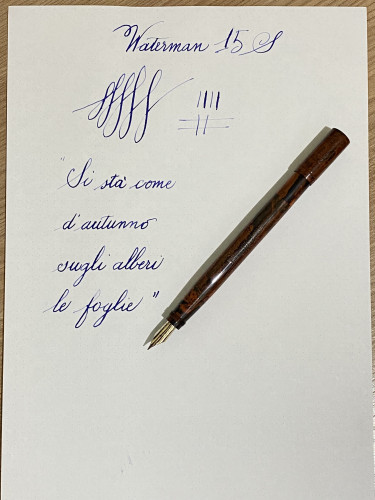 Waterman 15 S
"Si sta' come
d'autunno
sugli alberi
le foglie"